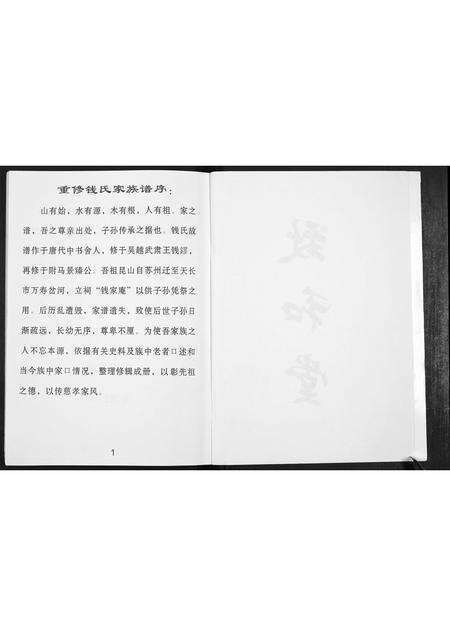 重修钱氏家族谱序：
山有始，水有源，木有根，人有祖。家之
谱，吾之尊亲出处，子孙传承之据也。钱氏故
谱作于唐代中书舍人，修于吴越武肃王钱镠，
再修于附马景臻公。吾祖昆山自苏州迁至天长
市万寿岔河，立祠“钱家庵”以供子孙凭祭之
用。后历乱遭毁，家谱遗失，致使后世子孙日
渐疏远，长幼无序，尊卑不厘。为使吾家族之
人不忘本源，依据有关史料及族中老者口述和
当今族中家口情况，整理修辑成册，以彰先祖
之德，以传慈孝家风。
1
致
和
堂